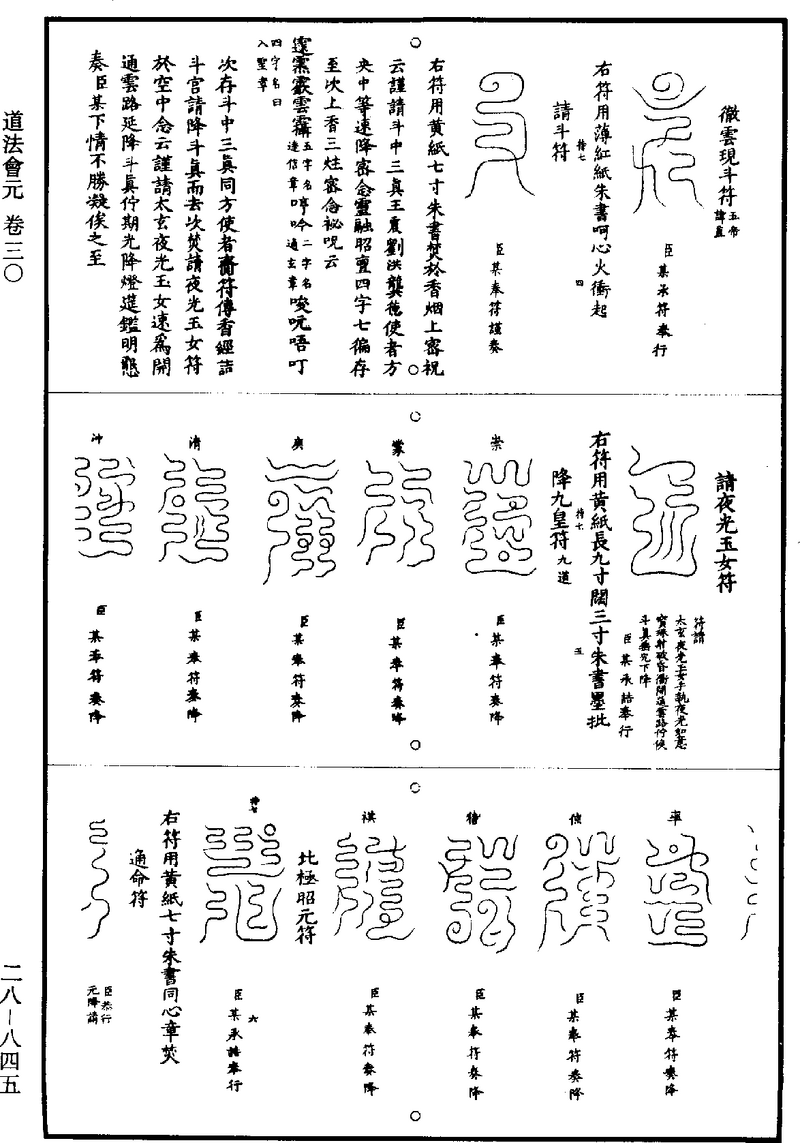 道法會元 卷三〇
二八—八四五
徹雲現斗符 五帝諱直
臣某承符奉行
右符用薄紅紙朱書呵心火衝起
請斗符
臣某奉符謹奏
右符用黃紙七寸朱書焚於香烟上密祝
云謹請斗中三眞王
劉洪龔
使者方
央中等速降密念靈融昭
四字七徧存
至次上香三炷密念祕呪云
五字名達信章
二字名通玄章
唆吮唔叮
四字名曰入聖章
次存斗中三眞同方使者齎符傳香經詣
斗宮請降斗眞而去次焚請夜光玉女符
於空中念云謹請太玄夜光玉女速爲開
通雲路延降斗眞佇期光降燈筵鑑明懇
奏臣某下情不勝
俟之至
請夜光玉女符
符請
太玄夜光玉女手執夜光如意
開通雲路佇俟
斗眞
下降
臣某承誥奉行
右符用黃紙長九寸闊三寸朱書墨批
降九皇符 九道
崇
臣某奉符奏降
臣某奉符奏降
臣某奉符奏降
清
臣某奉符奏降
沖
臣某奉符奏降
臣某奉符奏降
臣某奉符奏降
臣某奉符奏降
祺
臣某奉符奏降
北極昭元符
臣某承誥奉行
右符用黃紙七寸朱書同心章焚
通命符
臣恭行
元降請